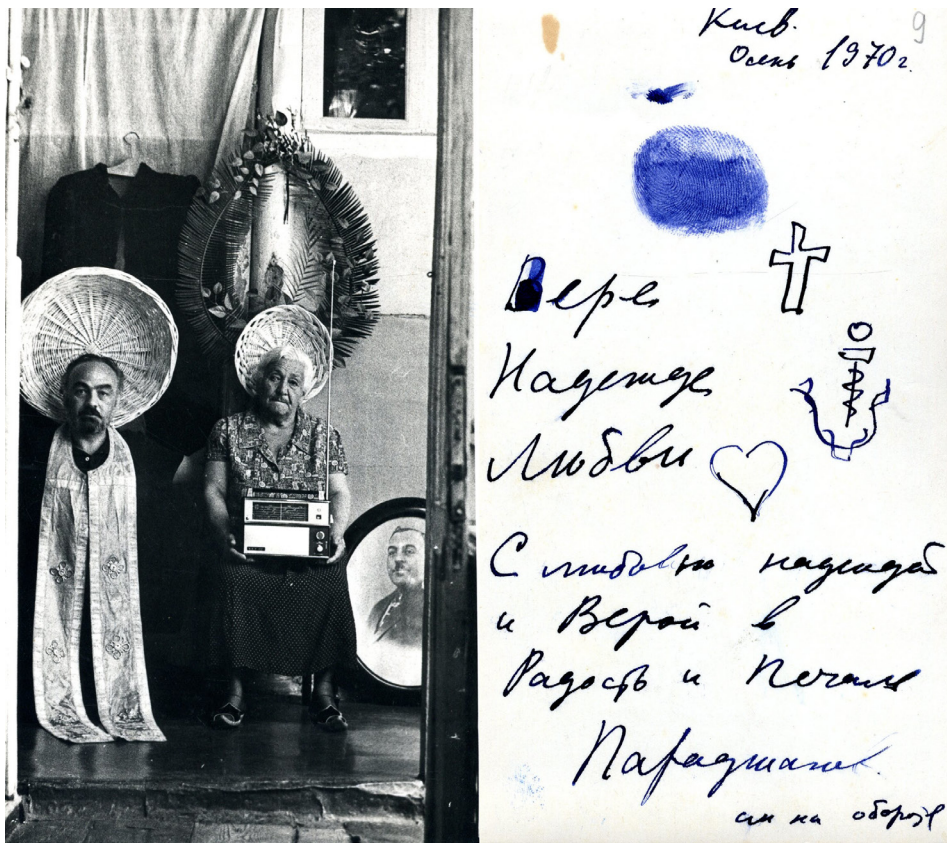 9
Киев.
Осень 1970 г.
Вере
Надежде
Любви
С любовью надеждой
и Верой в
Радость и Печаль
Параджанов
см на обороте